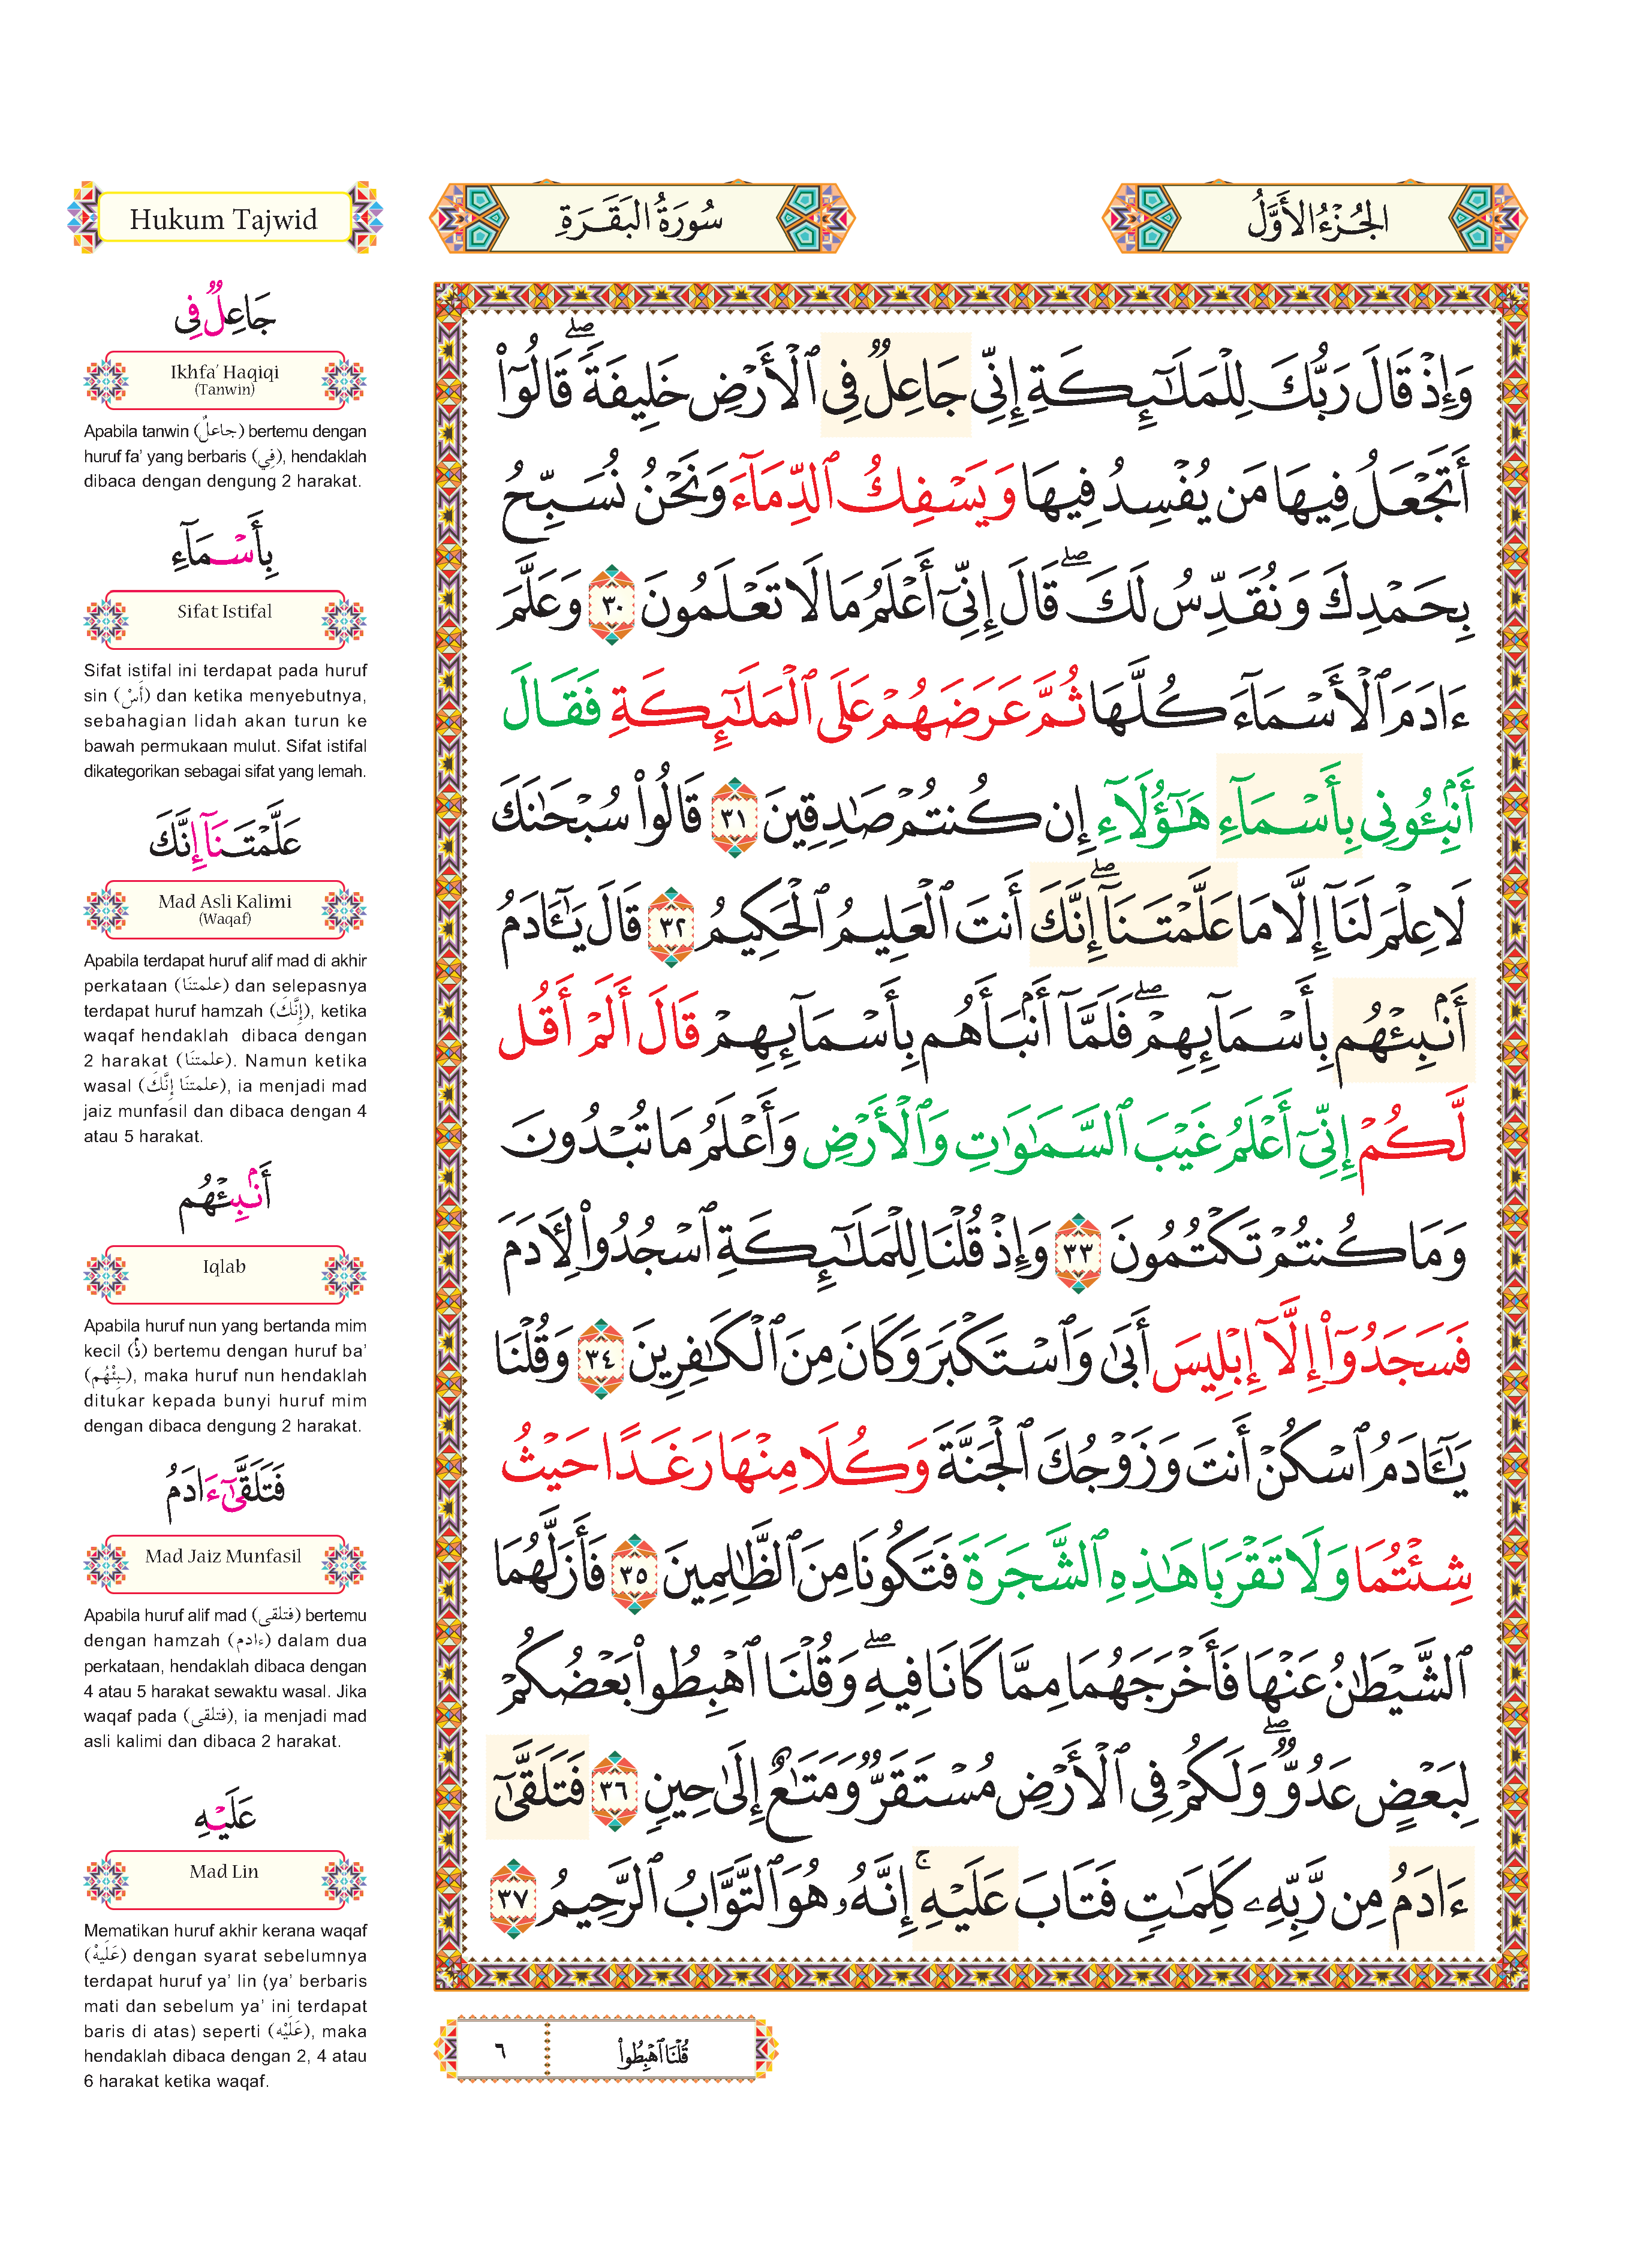 Hukum Tajwid
سُورَةُ البَقَرَةِ
الجُزْءُ الأَوَّلُ
جَاعِلٞ فِي
Ikhfa’ Haqiqi
(Tanwin)
Apabila tanwin (جاعلٌ) bertemu dengan
huruf fa’ yang berbaris (فِي), hendaklah
dibaca dengan dengung 2 harakat.
بِأَسۡمَآءِ
Sifat Istifal
Sifat istifal ini terdapat pada huruf
sin (أَسْ) dan ketika menyebutnya,
sebahagian lidah akan turun ke
bawah permukaan mulut. Sifat istifal
dikategorikan sebagai sifat yang lemah.
عَلَّمۡتَنَآ إِنَّكَ
Mad Asli Kalimi
(Waqaf)
Apabila terdapat huruf alif mad di akhir
perkataan (علمتنَا) dan selepasnya
terdapat huruf hamzah (إِنَّكَ), ketika
waqaf hendaklah dibaca dengan
2 harakat (علمتنَا). Namun ketika
wasal (علمتنَا إِنَّكَ), ia menjadi mad
jaiz munfasil dan dibaca dengan 4
atau 5 harakat.
أَنۢبِئۡهُم
Iqlab
Apabila huruf nun yang bertanda mim
kecil (نۢ) bertemu dengan huruf ba’
(ـبِئْهُم), maka huruf nun hendaklah
ditukar kepada bunyi huruf mim
dengan dibaca dengung 2 harakat.
فَتَلَقَّىٰٓ ءَادَمُ
Mad Jaiz Munfasil
Apabila huruf alif mad (فتلقى) bertemu
dengan hamzah (ءادم) dalam dua
perkataan, hendaklah dibaca dengan
4 atau 5 harakat sewaktu wasal. Jika
waqaf pada (فتلقى), ia menjadi mad
asli kalimi dan dibaca 2 harakat.
عَلَيۡهِ
Mad Lin
Mematikan huruf akhir kerana waqaf
(عَلَيْهْ) dengan syarat sebelumnya
terdapat huruf ya’ lin (ya’ berbaris
mati dan sebelum ya’ ini terdapat
baris di atas) seperti (عَلَيْهِ), maka
hendaklah dibaca dengan 2, 4 atau
6 harakat ketika waqaf.
وَإِذۡ قَالَ رَبُّكَ لِلۡمَلَٰٓئِكَةِ إِنِّي جَاعِلٞ فِي ٱلۡأَرۡضِ خَلِيفَةٗۖ قَالُوٓاْ
أَتَجۡعَلُ فِيهَا مَن يُفۡسِدُ فِيهَا وَيَسۡفِكُ ٱلدِّمَآءَ وَنَحۡنُ نُسَبِّحُ
بِحَمۡدِكَ وَنُقَدِّسُ لَكَۖ قَالَ إِنِّيٓ أَعۡلَمُ مَا لَا تَعۡلَمُونَ ٣٠ وَعَلَّمَ
ءَادَمَ ٱلۡأَسۡمَآءَ كُلَّهَا ثُمَّ عَرَضَهُمۡ عَلَى ٱلۡمَلَٰٓئِكَةِ فَقَالَ
أَنۢبِـُٔونِي بِأَسۡمَآءِ هَٰٓؤُلَآءِ إِن كُنتُمۡ صَٰدِقِينَ ٣١ قَالُواْ سُبۡحَٰنَكَ
لَا عِلۡمَ لَنَآ إِلَّا مَا عَلَّمۡتَنَآۖ إِنَّكَ أَنتَ ٱلۡعَلِيمُ ٱلۡحَكِيمُ ٣٢ قَالَ يَٰٓـَٔادَمُ
أَنۢبِئۡهُم بِأَسۡمَآئِهِمۡۖ فَلَمَّآ أَنۢبَأَهُم بِأَسۡمَآئِهِمۡ قَالَ أَلَمۡ أَقُل
لَّكُمۡ إِنِّيٓ أَعۡلَمُ غَيۡبَ ٱلسَّمَٰوَٰتِ وَٱلۡأَرۡضِ وَأَعۡلَمُ مَا تُبۡدُونَ
وَمَا كُنتُمۡ تَكۡتُمُونَ ٣٣ وَإِذۡ قُلۡنَا لِلۡمَلَٰٓئِكَةِ ٱسۡجُدُواْ لِأٓدَمَ
فَسَجَدُوٓاْ إِلَّآ إِبۡلِيسَ أَبَىٰ وَٱسۡتَكۡبَرَ وَكَانَ مِنَ ٱلۡكَٰفِرِينَ ٣٤ وَقُلۡنَا
يَٰٓـَٔادَمُ ٱسۡكُنۡ أَنتَ وَزَوۡجُكَ ٱلۡجَنَّةَ وَكُلَا مِنۡهَا رَغَدًا حَيۡثُ
شِئۡتُمَا وَلَا تَقۡرَبَا هَٰذِهِ ٱلشَّجَرَةَ فَتَكُونَا مِنَ ٱلظَّٰلِمِينَ ٣٥ فَأَزَلَّهُمَا
ٱلشَّيۡطَٰنُ عَنۡهَا فَأَخۡرَجَهُمَا مِمَّا كَانَا فِيهِۖ وَقُلۡنَا ٱهۡبِطُواْ بَعۡضُكُمۡ
لِبَعۡضٍ عَدُوّٞۖ وَلَكُمۡ فِي ٱلۡأَرۡضِ مُسۡتَقَرّٞ وَمَتَٰعٌ إِلَىٰ حِينٖ ٣٦ فَتَلَقَّىٰٓ
ءَادَمُ مِن رَّبِّهِۦ كَلِمَٰتٖ فَتَابَ عَلَيۡهِۚ إِنَّهُۥ هُوَ ٱلتَّوَّابُ ٱلرَّحِيمُ ٣٧
٦
قُلۡنَا ٱهۡبِطُواْ